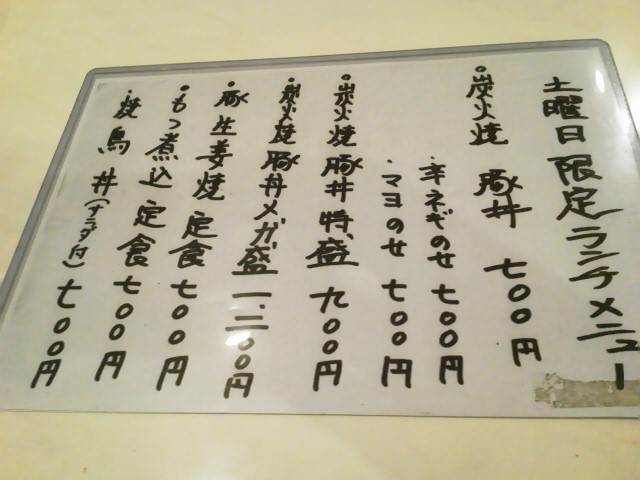 土曜日限定ランチメニュー
・炭火焼 豚丼 七〇〇円
・辛ネギのせ 七〇〇円
・マヨのせ 七〇〇円
・炭火焼 豚丼 特盛 九〇〇円
・炭火焼 豚丼メガ盛 一、二〇〇円
・豚生姜焼 定食 七〇〇円
・もつ煮込 定食 七〇〇円
・焼鳥丼(サラダ付) 七〇〇円